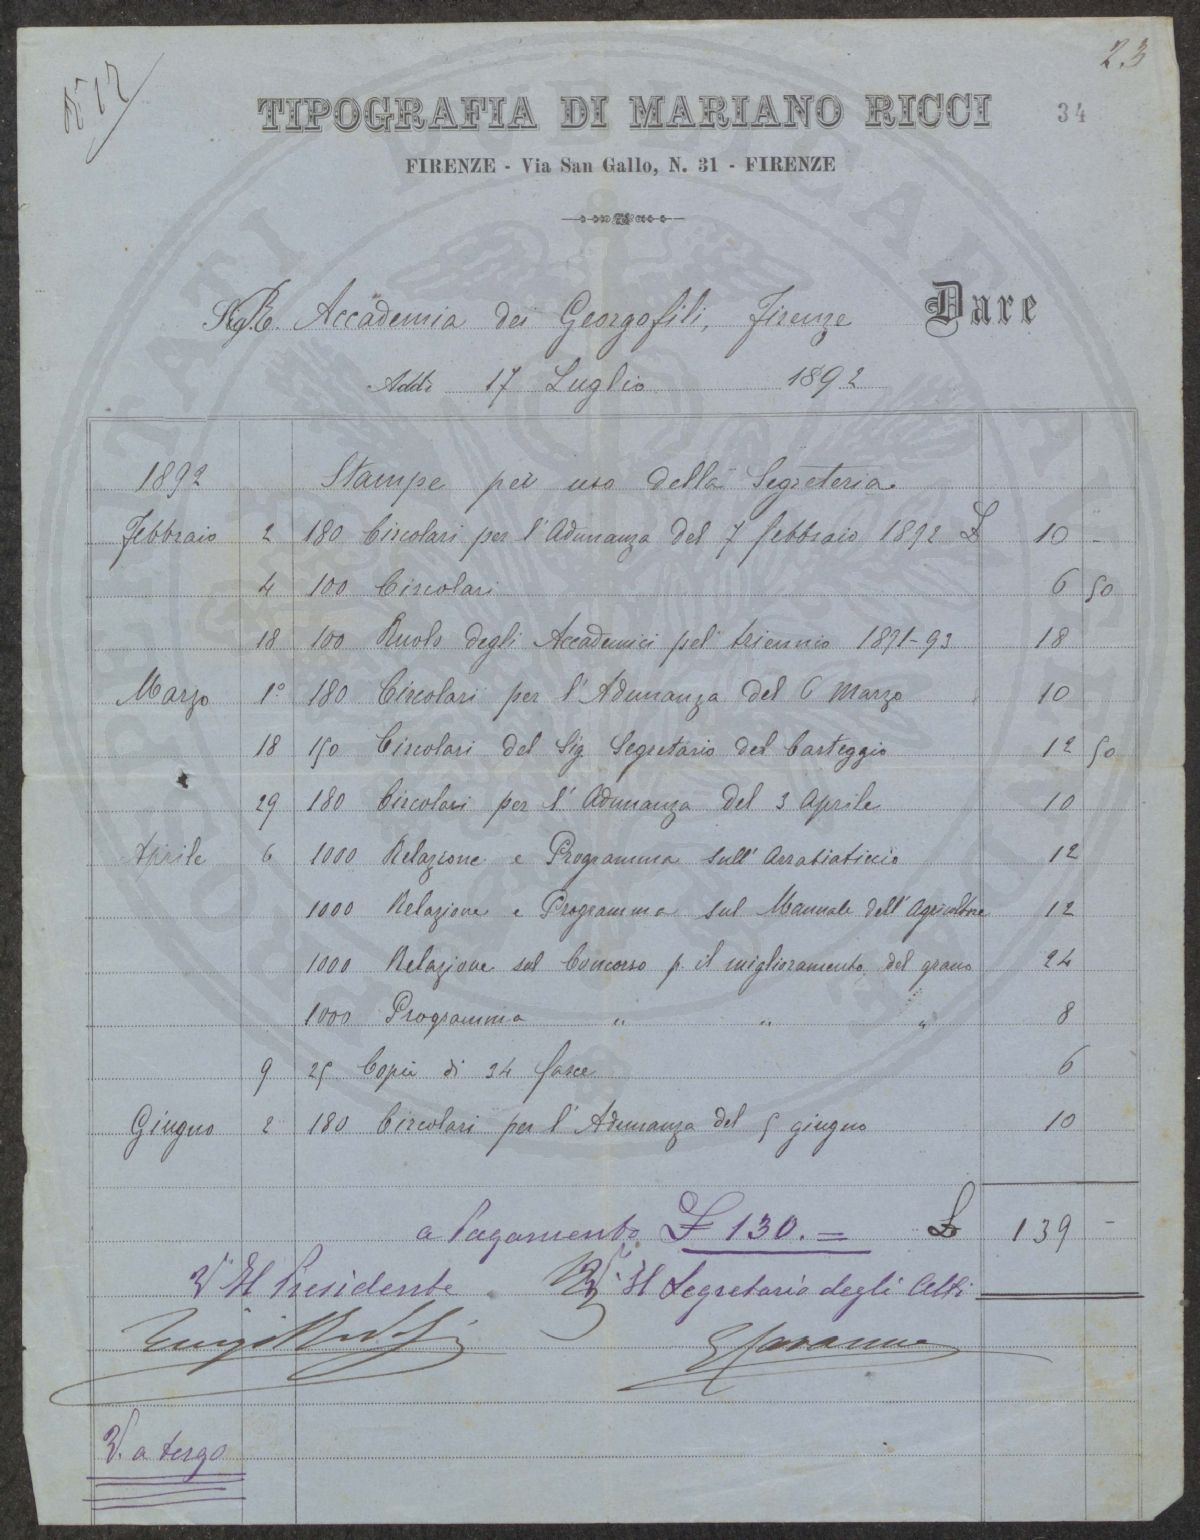 N° 12
23
TIPOGRAFIA DI MARIANO RICCI 34
FIRENZE - Via San Gallo, N. 31 - FIRENZE
R. Accademia dei Georgofili, Firenze Dare
Addì 17 Luglio 1892
1892 Stampe per uso della Segreteria
Febbraio 2 180 Circolari per l'Adunanza del 7 febbraio 1892 £ 10 -
4 100 Circolari 6 50
18 100 Ruolo degli Accademici pel triennio 1891-93 18
Marzo 1° 180 Circolari per l'Adunanza del 6 Marzo 10
18 150 Circolari del Sig. Segretario del Carteggio 12 50
29 180 Circolari per l'Adunanza del 3 Aprile 10
Aprile 6 1000 Relazione e Programma sull' 12
1000 Relazione e Programma sul Manuale dell'Agricoltore 12
1000 Relazione sul Concorso p. il miglioramento del grano 24
1000 Programma " " " 8
9 25 Copie di 34 fasce 6
Giugno 2 180 Circolari per l'Adunanza del 5 giugno 10
a Pagamento £ 130.= £ 139 -
V° Il Presidente V° Il Segretario degli Atti
V. a tergo
PROPRIETATI PUBLICAE